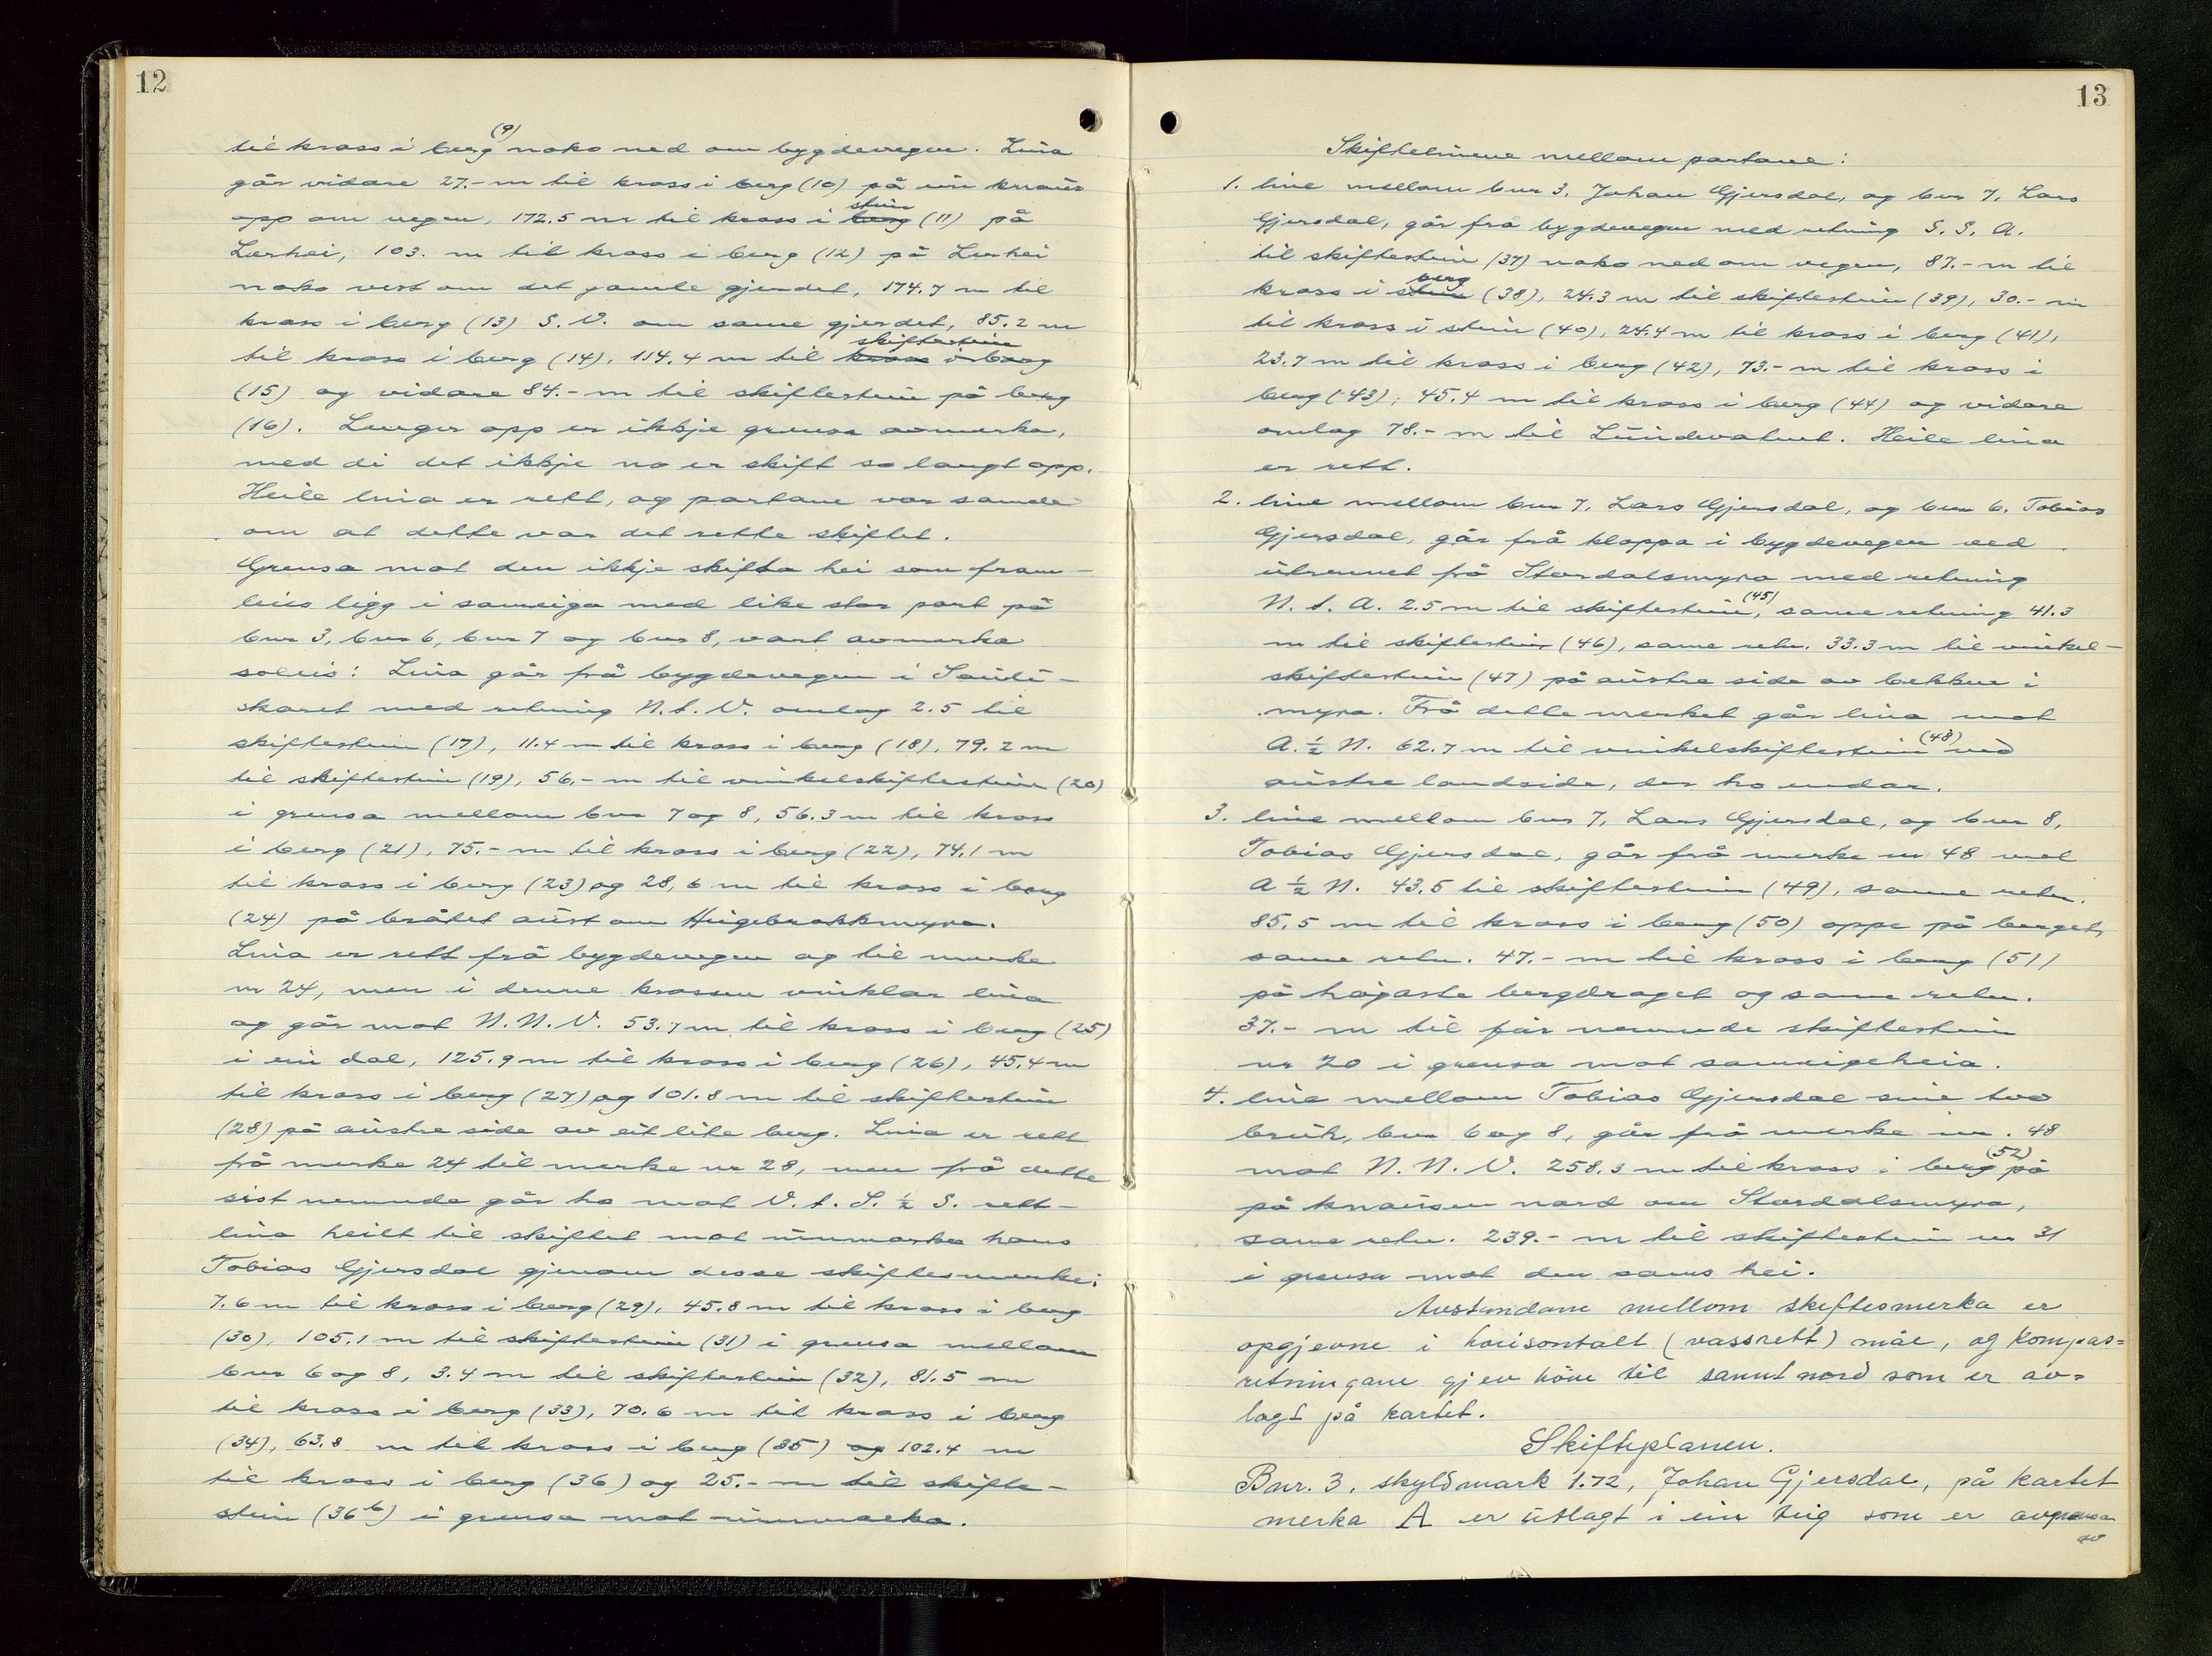 12
til kross i berg (9) noko ned om bygdevegen. Lina
går vidare 27.- m til kross i berg (10) på ein knaus
opp om vegen, 172.5 m til kross i berg stein (11) på
Lerhei, 103. m til kross i berg (12) på Lerhei
noko vest om det gamle gjerdet, 174.7 m til
kross i berg (13) S.V. om same gjerdet, 85.2 m
til kross i berg (14), 114.4 m til kross i berg skiftestein
(15) og vidare 84.- m til skiftestein på berg
(16). Lenger opp er ikkje grensa avmerka,
med di det ikkje no er skift so langt opp.
Heile lina er rett, og partane var samde
om at dette var det rette skiftet.
Grensa mot den ikkje skifta hei som fram-
leis ligg i sameiga med like stor part på
bnr 3, bnr 6, bnr 7 og bnr 8, vart avmerka
soleis: Lina går frå bygdevegen i Sauti-
skaret med retning N.t.V. omlag 2.5 til
skiftestein (17), 11.4 m til kross i berg (18), 79.2 m
til skiftestein (19), 56.- m til vinkelskiftestein (20)
i grensa mellom bnr 7 og 8, 56.3 m til kross
i berg (21), 75.- m til kross i berg (22), 74.1 m
til kross i berg (23) og 28,6 m til kross i berg
(24) på bråtet aust om Heigebrakkmyra.
Lina er rett frå bygdevegen og til merke
nr 24, men i denne krossen vinklar lina
og går mot N.N.V. 53.7 m til kross i berg (25)
i ein dal, 125.9 m til kross i berg (26), 45.4 m
til kross i berg (27) og 101.8 m til skiftestein
(28) på austre side av eit lite berg. Lina er rett
frå merke 24 til merke nr 28, men frå dette
sist nemnde går ho mot V.t.S. ½ S. rett-
lina heilt til skiftet mot innmarka hans
Tobias Gjersdal gjenom desse skiftesmerke:
7.6 m til kross i berg (29), 45.8 m til kross i berg
(30), 105.1 m til skiftestein (31) i grensa mellom
bnr 6 og 8, 3.4 m til skiftestein (32), 81.5 m
til kross i berg (33), 70.6 m til kross i berg
(34), 63.8 m til kross i berg (35) og 102.4 m
til kross i berg (36) og 25.- m til skifte-
stein (36b) i grensa mot innmarka.
13
Skiftelinene mellom partane:
1. line mellom bnr 3, Johan Gjersdal, og bnr 7, Lars
Gjersdal, går fra bygdevegen med retning S.S.A.
til skiftestein (37) noko ned om vegen, 87.- m til
kross i stein berg (38), 24.3 m til skiftestein (39), 30.- m
til kross i stein (40), 24.4 m til kross i berg (41),
23.7 m til kross i berg (42), 73.- m til kross i
berg (43), 45.4 m til kross i berg (44) og vidare
omlag 78.- m til Lundevatnet. Heile lina
er rett.
2. line mellom bnr 7, Lars Gjersdal, og bnr 6. Tobias
Gjersdal, går frå kloppa i bygdevegen ved
utrennet frå Stordalsmyra med retning
N.t.A. 2.5 m til skiftestein (45), same retning 41.3
m til skiftestein (46), same retn. 33.3 m til vinkel-
skiftestein (47) på austre side av bekken i
myra. Frå dette merket går lina mot
A. ½ N. 62.7 m til vinkelskiftestein (48) ved
austre landside, der ho endar.
3. line mellom bnr 7, Lars Gjersdal, og bnr 8,
Tobias Gjersdal, går frå merke nr 48 mot
A ½ N. 43.5 til skiftestein (49), same retn.
85.5 m til kross i berg (50) oppe på berget,
same retn. 47.- m til kross i berg (51)
på høgaste bergdraget og same retn.
37.- m til før nemnde skiftestein
nr 20 i grensa mot sameigeheia.
4. line mellom Tobias Gjersdal sine tvo
bruk, bnr 6 og 8, går frå merke nr. 48
mot N.N.V. 258.3 m til kross i berg (52) på
på knausen nord om Stordalsmyra,
same retn. 239.- m til skiftestein nr 31
i grensa mot den sams hei.
Avstandane mellom skiftesmerka er
opgjevne i horisontalt (vassrett) mål, og kompas=
retningane gjev höve til sannt nord som er av=
lagt på kartet.
Skifteplanen.
Bnr. 3, skyldmark 1.72, Johan Gjersdal, på kartet
merka A er utlagt i ein teig som er avgrensa
av